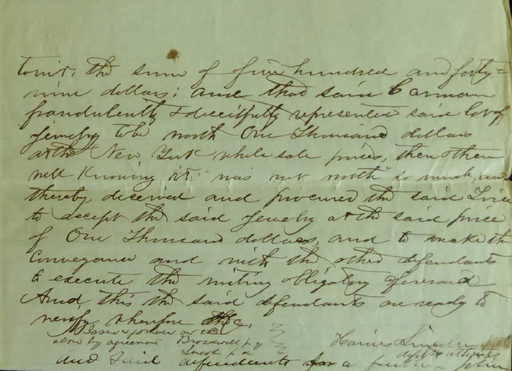 towit: the sum of five hundred and forty=
nine dollars; and that said Carman
fraudulently & deceitfully represented said lot of
jewelry to be worth One Thousand dollars
at the New York whole sale prices, then & there
well knowing it was not worth so much, and
thereby, deceived and procured the said
to accept the said jewelry at the said price
of One Thousand dollars and to make the
Conveyance and with the other defendants
to execute the writing obligatory aforesaid
And this the said defendants are ready to
verify wherefore &c,
by agreement
And said defendants for a